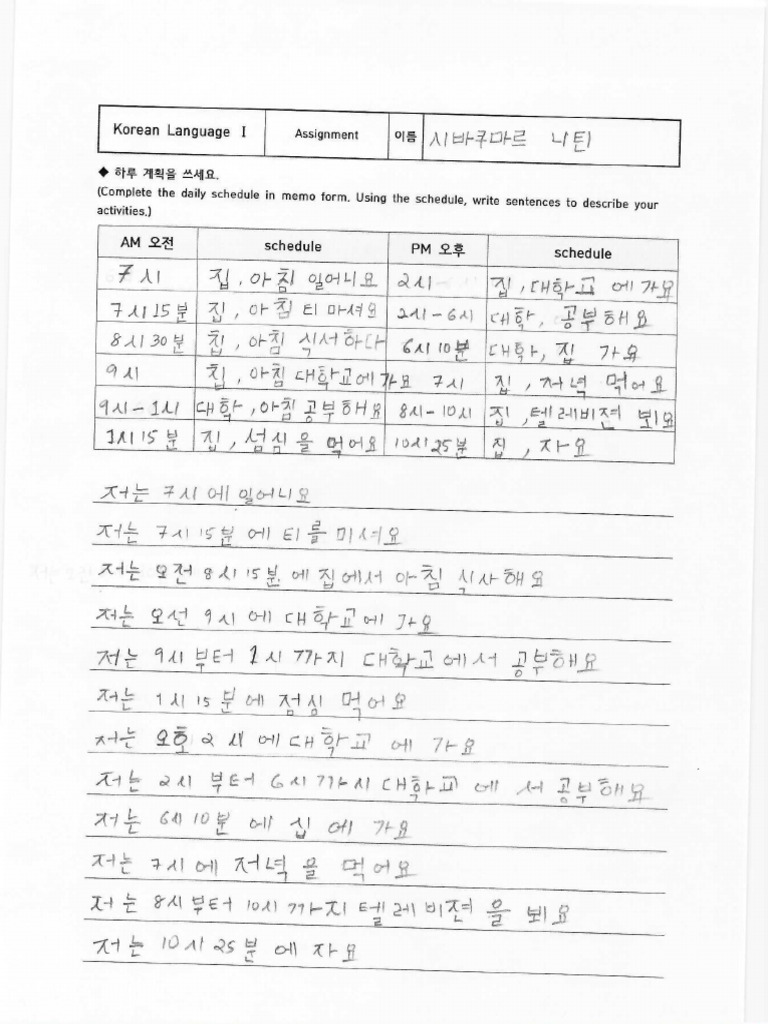 Korean Language I Assignment 이름 시바쿠마르 니틴
◆ 하루 계획을 쓰세요.
(Complete the daily schedule in memo form. Using the schedule, write sentences to describe your
activities.)
AM 오전 schedule PM 오후 schedule
7시 집, 아침 일어니요 2시 집, 대학교 에 가요
7시 15분 집, 아침 티 마셔요 2시-6시 대학, 공부해요
8시 30분 집, 아침 식서하다 6시 10분 대학, 집 가요
9시 집, 아침 대학교에 가요 7시 집, 저녁 먹어요
9시-1시 대학, 아침 공부해요 8시-10시 집, 텔레비젼 뵈요
1시 15분 집, 섬심을 먹어요 10시 25분 집, 자요
저는 7시에 일어니요
저는 7시 15분에 티를 미셔요
저는 오전 8시 15분에 집에서 아침 식사해요
저는 오선 9시에 대학교에 가요
저는 9시부터 1시까지 대학교에서 공부해요
저는 1시 15분에 점심 먹어요
저는 오호 2시에 대학교 에 가요
저는 2시 부터 6시까시 대학교 에 서 공부해요
저는 6시 10분 에 십 에 가요
저는 7시에 저녁 을 먹어요
저 는 8시부터 10시까지 텔레비젼을 뵈요
저는 10시 25분 에 자요